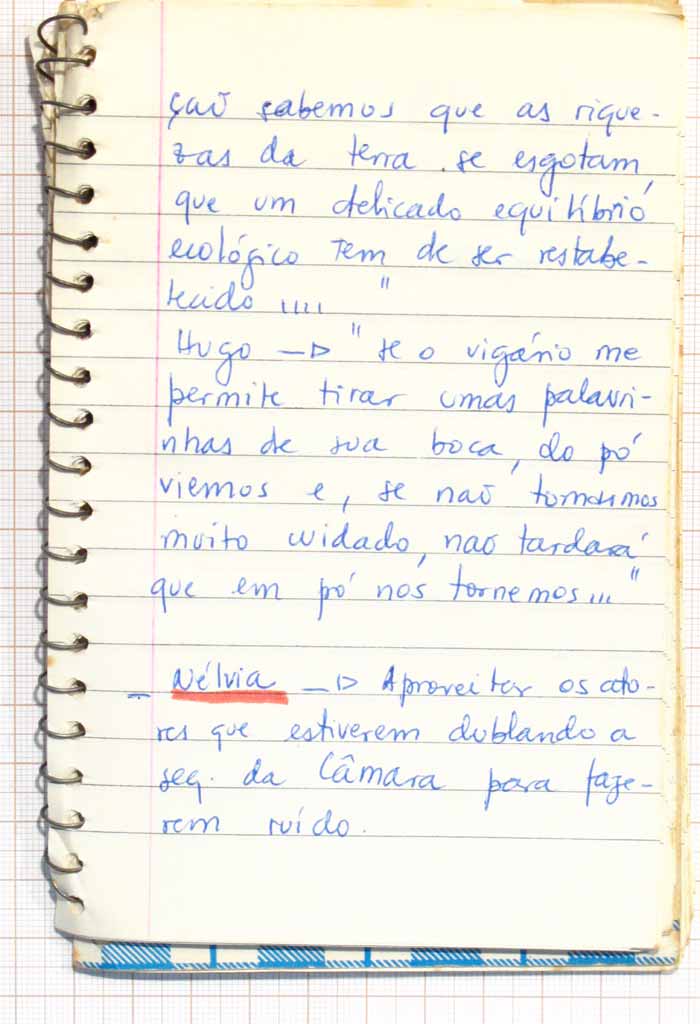 ção sabemos que as rique-
zas da terra se esgotam,
que um delicado equilíbrio
ecológico tem de ser restabe-
lecido .... "
Hugo —▷ "se o vigário me
permite tirar umas palavri-
nhas de sua boca, do pó
viemos e, se não tomarmos
muito cuidado, não tardará
que em pó nos tornemos..."
— Nélvia —▷ Aproveitar os ato-
res que estiverem dublando a
seq. da Câmara para faze-
rem ruído.